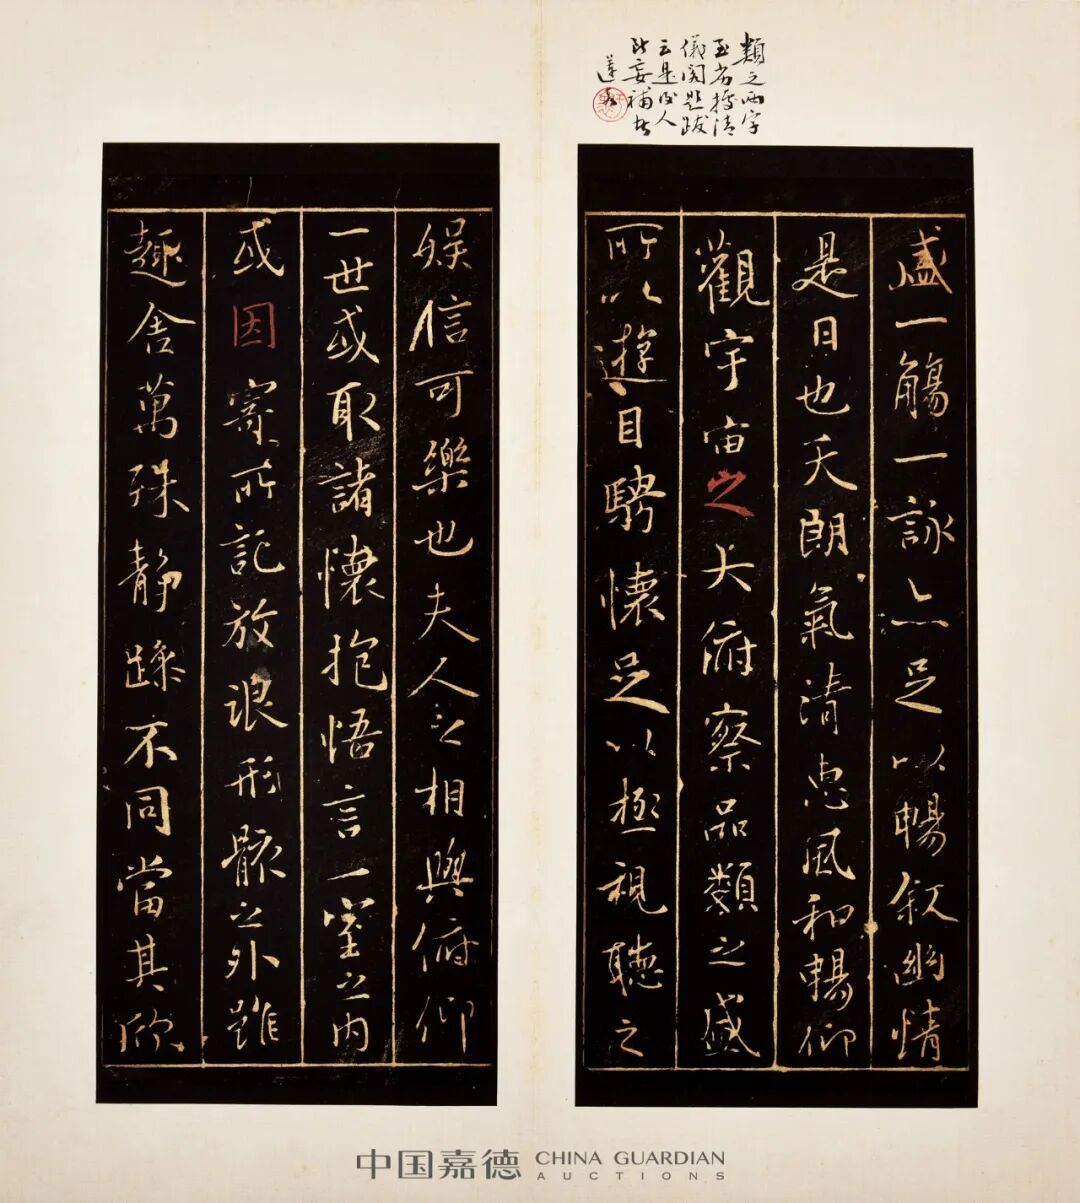 類之兩字
據清
儀閣題跋
云是後人
妄補者
蓮
盛一觴一詠亦足以暢叙幽情
是日也天朗氣清惠風和暢仰
觀宇宙之大俯察品類之盛
所以遊目騁懷足以極視聽之
娛信可樂也夫人之相與俯仰
一世或取諸懷抱悟言一室之內
或因寄所託放浪形骸之外雖
趣舍萬殊靜躁不同當其欣
中国嘉德 CHINA GUARDIAN
AUCTIONS